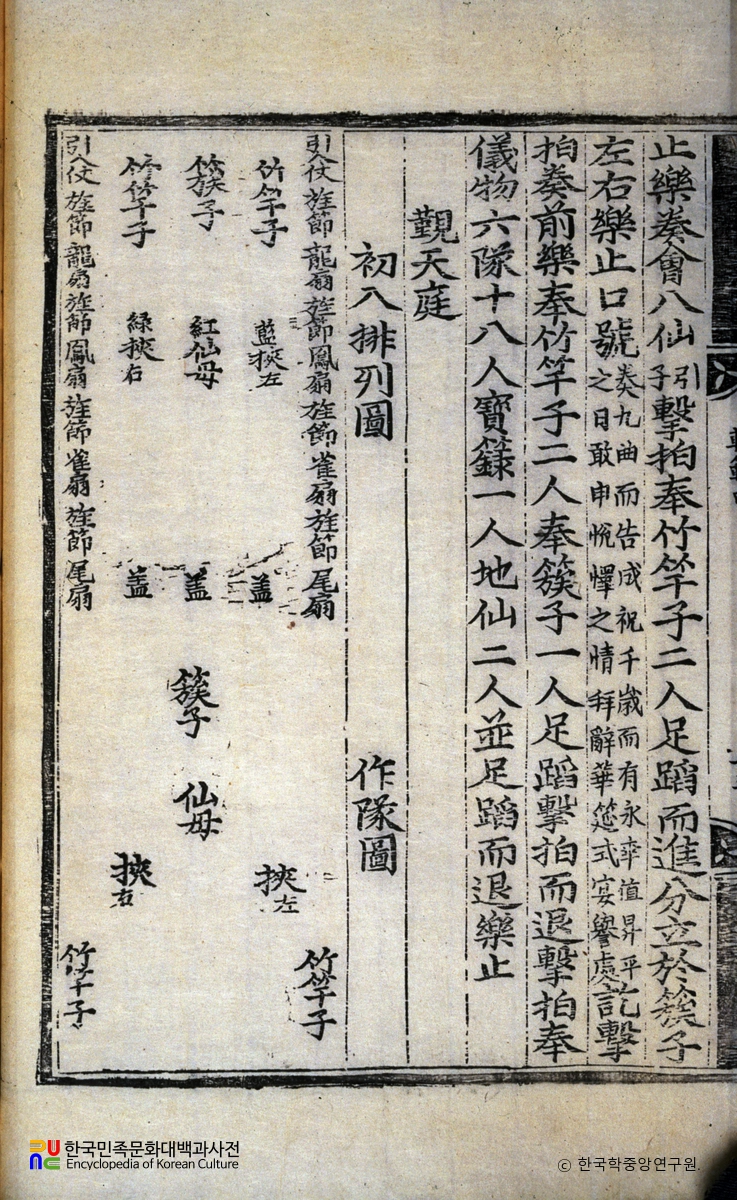 止樂奏會八仙引子擊拍奉竹竿子二人足蹈而進分立於簇子
左右樂止口號奏九曲而告成祝千歲而有永幸值昇平之日敢申悅懌之情拜辭華筵式宴譽處訖擊
拍奏前樂奉竹竿子二人奉簇子一人足蹈擊拍而退擊拍奉
儀物六隊十八人寶籙一人地仙二人並足蹈而退樂止
覲天庭
初入排列圖
作隊圖
引人仗 旌節 龍扇 旌節 鳳扇 旌節 雀扇 旌節 尾扇
竹竿子 藍挾左 盖
簇子 紅仙母 盖
竹竿子 綠挾右 盖
引人仗 旌節 龍扇 旌節 鳳扇 旌節 雀扇 旌節 尾扇
竹竿子
挾左
簇子 仙母
挾右
竹竿子
한국민족문화대백과사전
Encyclopedia of Korean Culture
© 한국학중앙연구원.